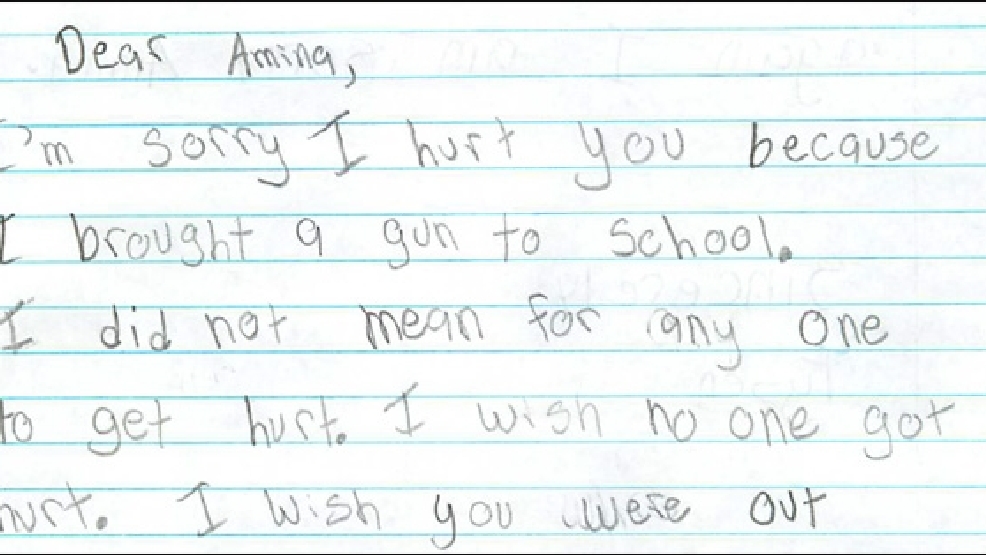 Dear Amina,
I'm sorry I hurt you because
I brought a gun to school.
I did not mean for any one
to get hurt. I wish no one got
hurt. I wish you were out